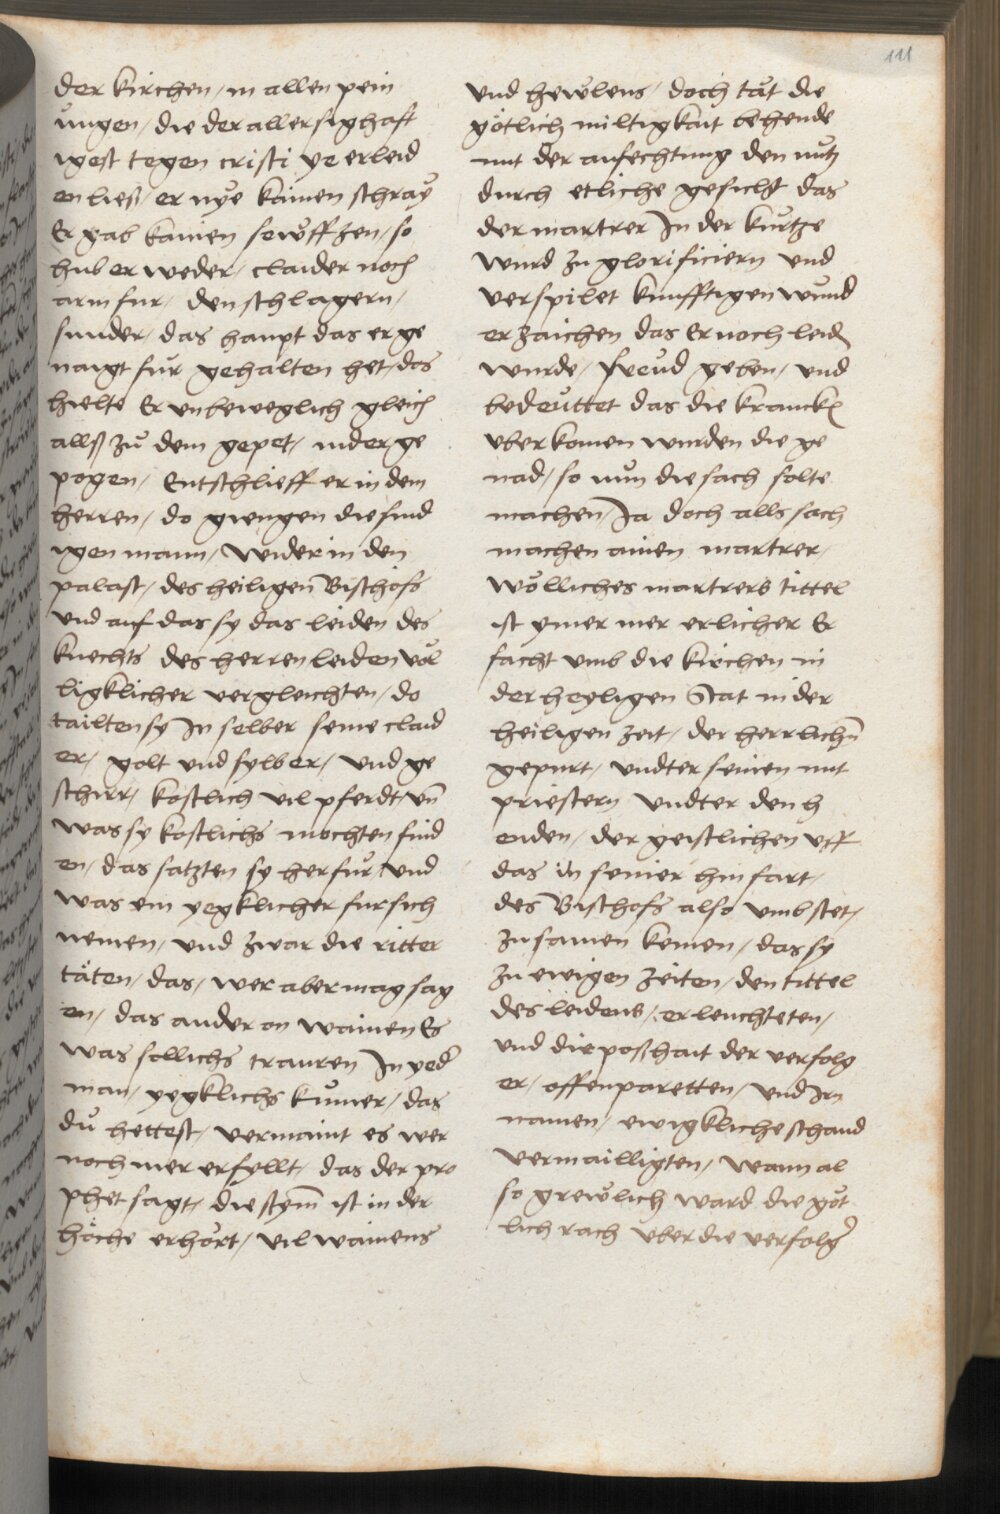 111
der kirchen / in allen pein
ungen / die der aller sighaft
igest tegen cristi ye erleid
en ließ / er nye kainen schray
Er gab kainen sewffzen / so
hub er weder / claider noch
arm fur / den schlagern /
sunder / das haupt das er ge
naigt fur gehalten het / das
hielte Er unbeweglich gleich
allß zu dem gepet / nider ge
pogen / Entschlieff er in dem
herren / do giengen die sind
igen mann / wider in den
palast / des heiligen Bischofs
und auf das sy das leiden des
knechts des herren leiden vol
ligklicher vergleichten / do
tailten sy In selber seine claid
er / golt und sylber / und ge
schirr / kostlich vil pferdt / vn̄
was sy kostlichs mochten find
en / das satzten sy herfur / und
was ein yegklicher fur sich
nemen / und zwar die ritter
täten / das / wer aber mag sag
en / das ander on wainen Es
was sollichs trauren In yed̉
man / yegklichs kumer / das
du hettest / vermaint es wer
noch mer erfyllt / das der pro
phet sagt / die stym̄ ist in der
höche erhört / vil wainens
und hewlens / doch tät die
götlich miltigkait behende
mit der anfechtung den nutz
durch etliche gesicht das
der martrer In der kurtze
wurd zu glorificiern und
verspilet kunfftigen wund
erzaichen das Er noch leidn̄
wurde / freud geben / und
bedeuttet das die krancken̄
uberkomen wurden die ge
nad / so nun die sach solte
machen / Ja doch alls sach
machen ainen martrer /
wölliches martrers tittel
ist ymer mer erlicher Er
facht umb die kirchen in
der heyligen Stat in der
heiligen zeit / der herrlichn̄
gepurt / undter seinen mit
priestern undter den h
enden / der geistlichen uff
das in seiner hinfart /
des Bischofs also umbstet /
zu samen kemen / das sy
zu ewigen zeiten / den tittel
des leidens / erleuchteten /
und die poßhait der verfolg
er / offenparetten / und irn
namen / ewigkliche schand
vermailligten / wann al
so grewlich ward die göt
lich rach uber die verfolg̉